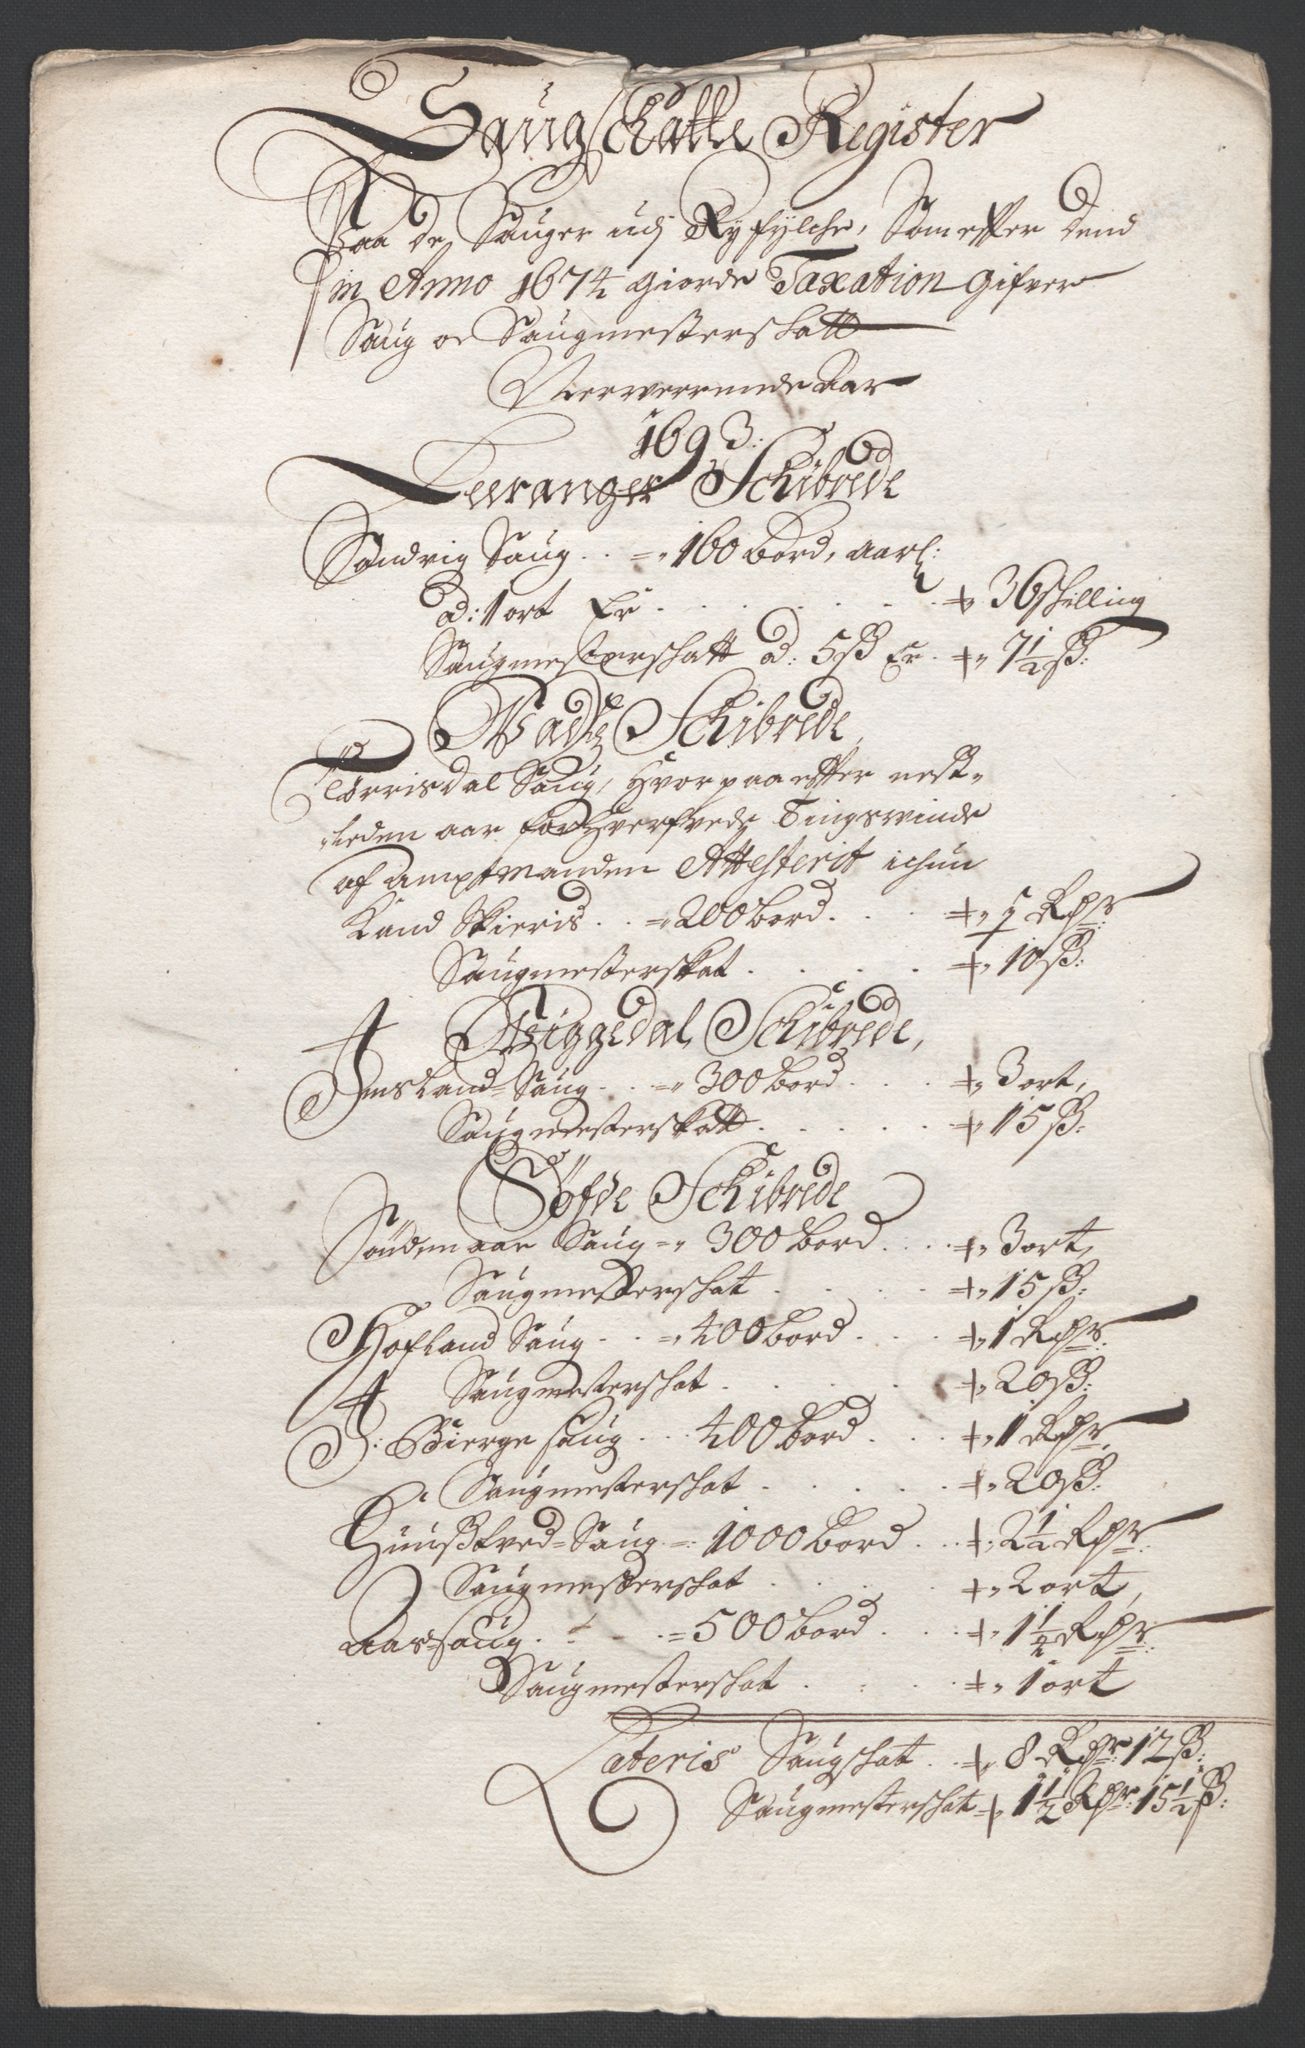 Saug Schatte Register
Paa de Sauger udj Ryfylche, Som efter dend
in Anno 1674 giorde Taxation gifver
Saug oc Saugmesterschatt
Nerverrende Aar
1693:
Leeranger Schibrede
Sandvig Saug . . =„ 160 bord, aarl:
a: 1 ort Er . . . . . „ 36 schilling
Saugmesterschatt a: 5 ß Er . „ 7½ ß:
Vadtz Schibrede
Tørrisdal Saug, hvorpaa efter nest-
leden aar forhverfvede Tingswinde
af amptmanden Attesterit ichun
Kand Skieris . . =„ 200 bord . . „ ½ Rdr:
Saugmesterskat . . . . „ 10 ß:
Viggedal Schibrede,
Imsland Saug . . =„ 300 bord . . . „ 3 ort,
Saugmesterskatt . . . . . „ 15 ß:
Søfde Schibrede
Søndenaae Saug =„ 300 bord . . . „ 3 ort,
Saugmesterschat . . . . „ 15 ß:
Hofland Saug . . =„ 400 bord . . . „ 1 Rdr:
Saugmesterschat . . . . „ 20 ß:
J: Bierge saug . . . 400 bord . . . „ 1 Rdr
Saugmesterschat . . . . . „ 20 ß:
Huußtved-Saug =: 1000 bord . . „ 2½ Rdr:
Saugmesterschat . . . . „ 2 ort,
Aar-saug . . . . = 500 bord . . . „ 1¼ Rdr:
Saugmesterschat . . . . „ 1 ort
Lateris Saugschat . . „ 8 Rdr: 12 ß:
Saugmesterschat „ 1½ Rdr: 15½ ß: